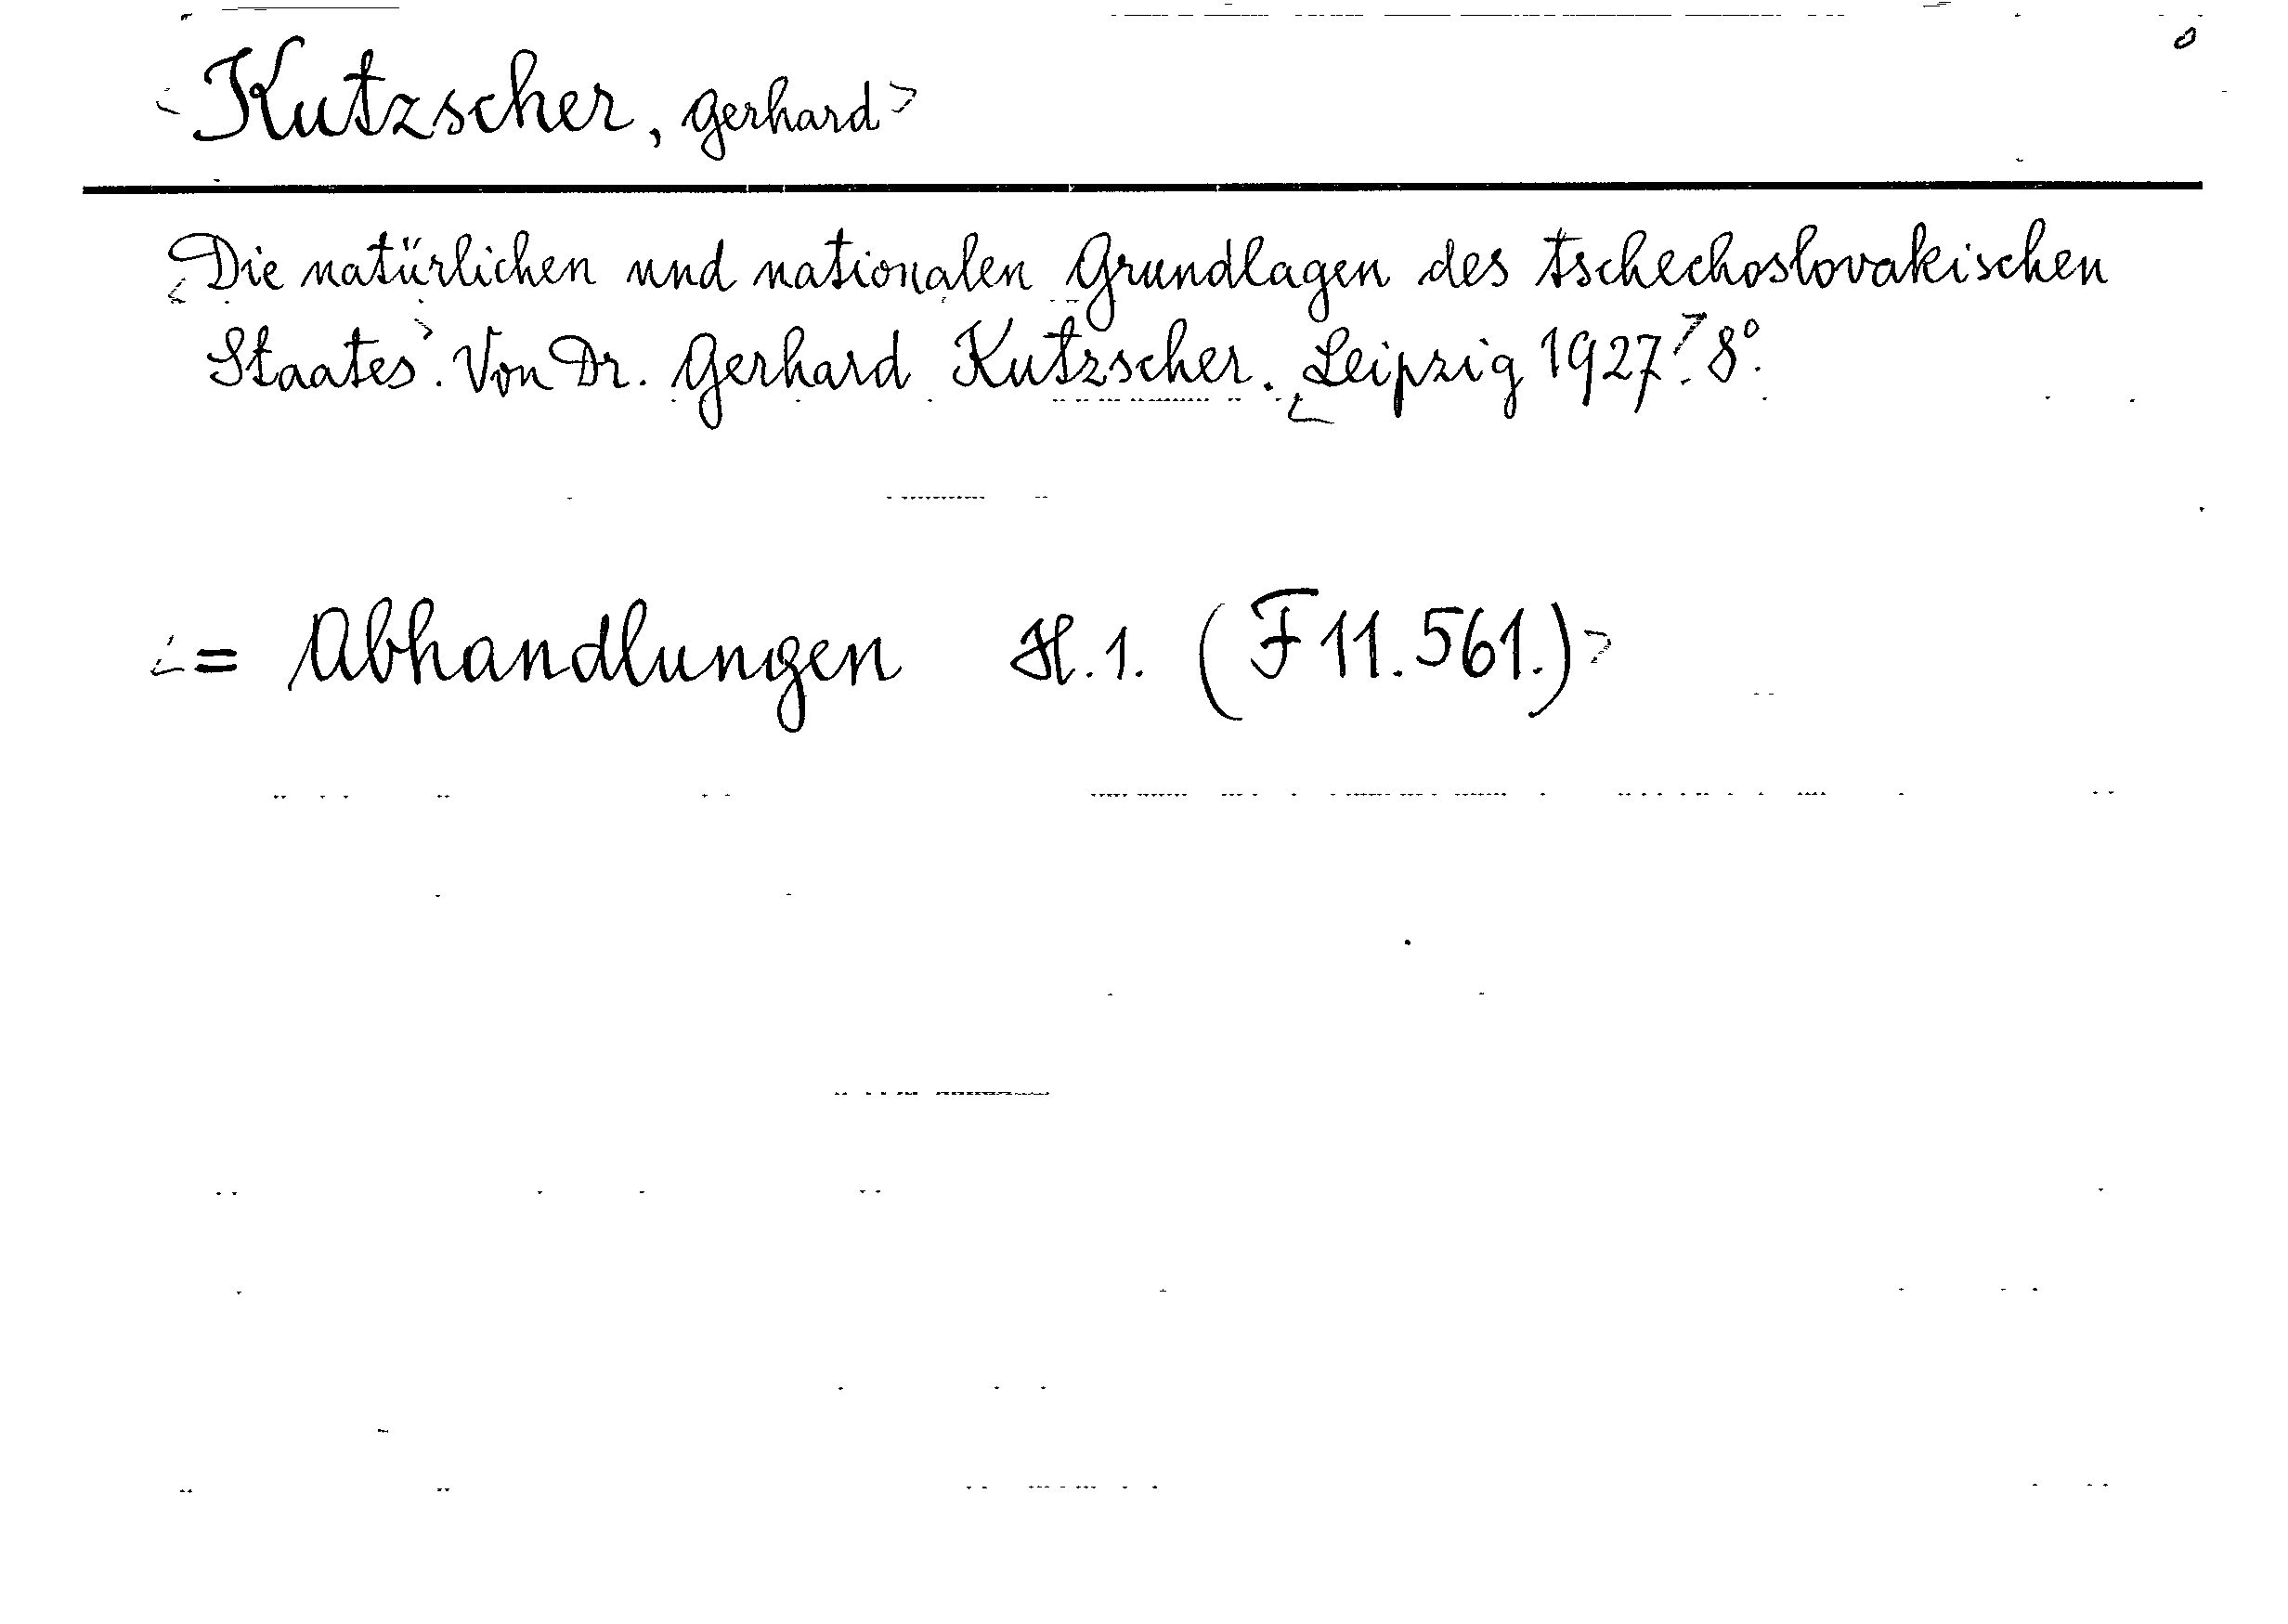 <Kutzscher, Gerhard>
<Die natürlichen und nationalen Grundlagen des tschechoslovakischen
Staates>. Von Dr. Gerhard Kutzscher. <Leipzig 1927.> 8°.
<= Abhandlungen H. 1. (F 11.561.)>